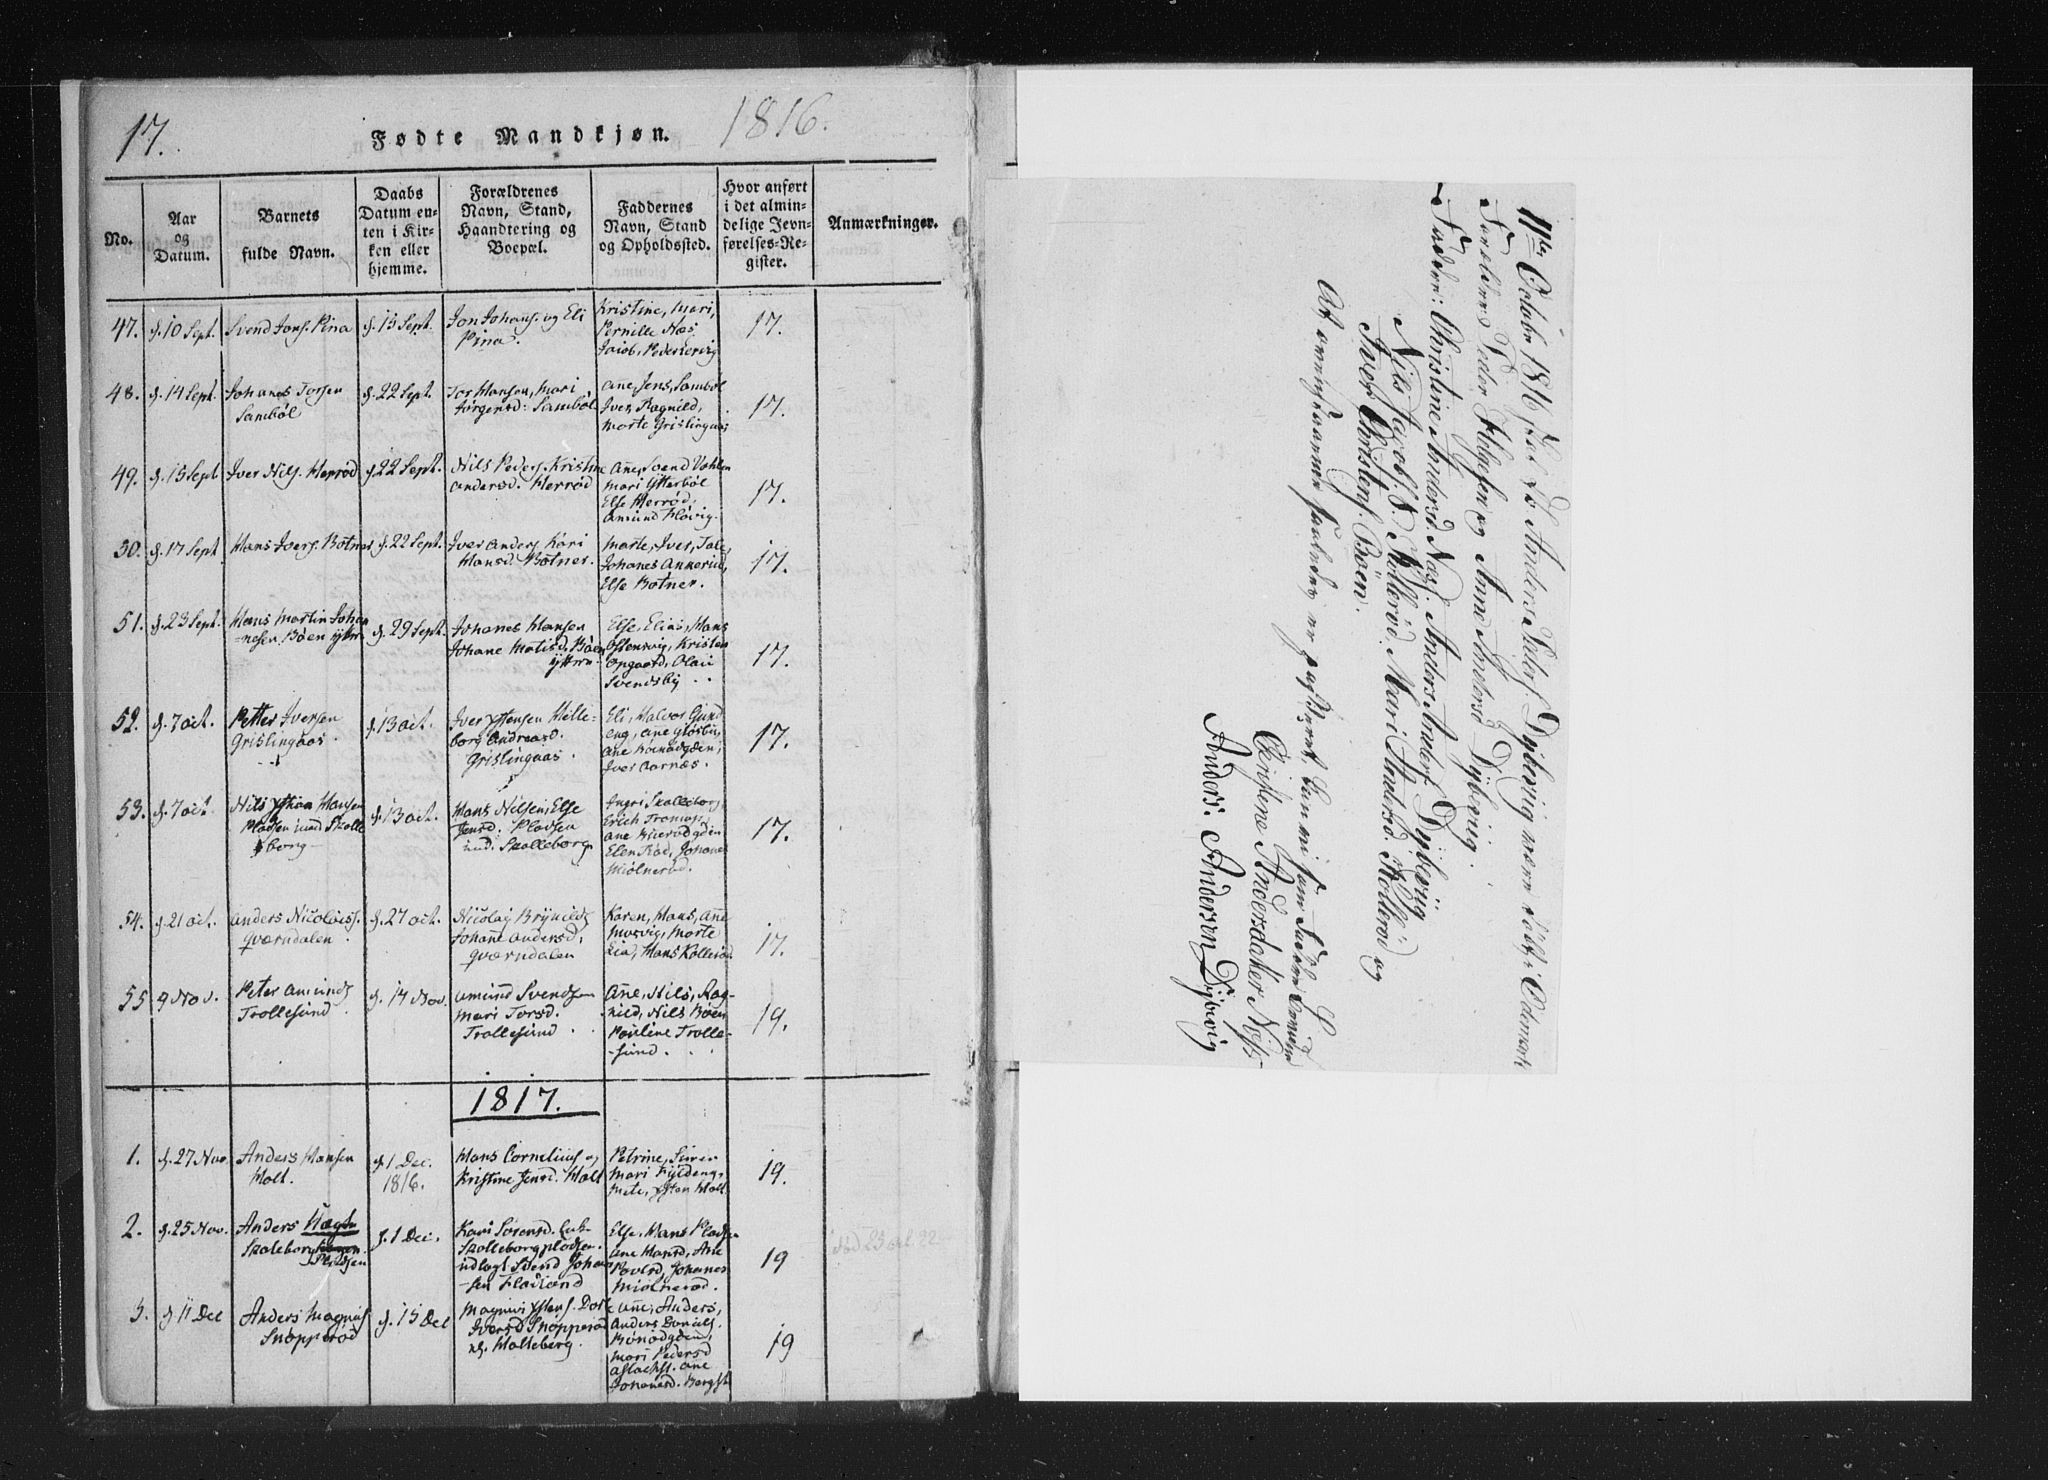 17. Fødte Mandkjøn. 1816.
No.
Aar
og
Datum.
Barnets
fulde Navn.
Daabs
Datum en-
ten i Kir-
ken eller
hjemme.
Forældrenes
Navn, Stand,
Haandtering og
Boepæl.
Faddernes
Navn, Stand
og Opholdssted.
Hvor anført
i det almin-
delige Jevn-
førelses-Re-
gister.
Anmærkninger.
47.
d. 10 Sept.
Svend Jons. Pina
d. 15 Sept.
Jon Johans. og Eli
Pina.
Kristine, Mari,
Pernille Næs,
Jacob, Pederservig
17.
48.
d. 14 Sept.
Johanes Torsen
Sambøl
d. 22 Sept.
Tor Hansen, Mari
Jørgensd: Sambøl
Ane, Jens, Sambøl
Iver, Ragnild,
Morte Grislingaas
17.
49.
d. 15 Sept
Iver Nils. Herrød
d. 22 Sept.
Nils Peders. Kristine
Andersd. Herrød
Ane, Svend Vahlen
Mari Ytterbøl
Else Herrød.
Amund Fløvig.
17.
50.
d. 17 Sept
Hans Ivers. Botner
d. 22 Sept.
Iver Anders Kari
Hansd. Botner.
Marte, Iver, Tale,
Johanes Ankerud,
Else Botner.
17.
51.
d. 23 Sept.
Hans Martin Johan
-nesen Bøen yttre
d. 29 Sept.
Johanes Hansen
Johane Matisd, Bøen
yttre
Else, Elias, Hans
Østenvig, Kristen
Opgaard, Olaii
Svendsby
17.
52.
d. 7 Oct.
Petter Iversen
Grislingaas
d. 13 Oct.
Iver Ystensen Hille-
borg Andreasd.
Grislingaas.
Eli, Halvor Gund
eng, Ane Gløsbu,
Ane Bønødgden,
Iver Aarnæs.
17.
53.
d. 7 Oct
Nils Ystian Hansen
Pladsen und Skolle
borg
d. 13 Oct.
Hans Nilsen, Else
Jensd. Pladsen
und. Skolleborg
Ingri Skolleborg
Erich Tromop,
Ane Buerødgden
Elen Rød, Johanes
Miølnerød.
17.
54.
d. 21 Oct.
Anders Nicolaiss.
Qværndalen
d. 27 Oct.
Nicolay Brynilds
Johane Andersd,
Qværndalen
Karen, Hans, Ane
Musvig, Morte
Lia, Hans Kollerød
17.
55
9 Nov.
Peter Amunds
Trollesund
d. 14 Nov.
Amund Svendsen
Mari Torsd.
Trollesund
Ane, Nils, Rag-
nild, Nils Bøen
Pauline Trolle-
-sund.
19.
1817.
1.
d. 27 Nov.
Anders Hansen
Holt.
d. 1 Dec.
1816.
Hans Cornelius og
Kristine Jensd. Holt
Petrine, Sivert
Mari Fyldeng,
Mete, Ysten Holt
19.
2.
d. 25 Nov.
Anders
Skoleborg
Pladsen
d. 1 Dec.
Kari Sørensd. Enk-
Skolleborgpladsen.
udlagt Svend Johan
-sen Fladland
Else, Hans Pladsen
Ane Hansd, Ane
Povlsd, Johanes
Miølnerød.
19
3.
d. 11 Dec
Anders Magnus
Snopperød
d. 15 Dec
Magnus Ystens. Dorte
Iversd Snopperød
Holleberg.
Ane, Anders,
Anders Daniels.
Bønødgden,
Mari Pedersd
Aslachst. Ane
Johanesd. Bergst
19
11te October 1816, Anders Peders Dÿbevig være født i Odemark
Forældrene Peder Helgesen og Anne Andersd Dÿbevig.
Faddere: Christine Andersd. Næs. Anders Anders Dÿbevig
Nils Jacobs. Kollerød. Mari Andersd. Kollerød og
Iver Christens. Böen.
At saaledes er vi som
Christine Andersdatter Ness
Anders. Andersen Dÿbevig